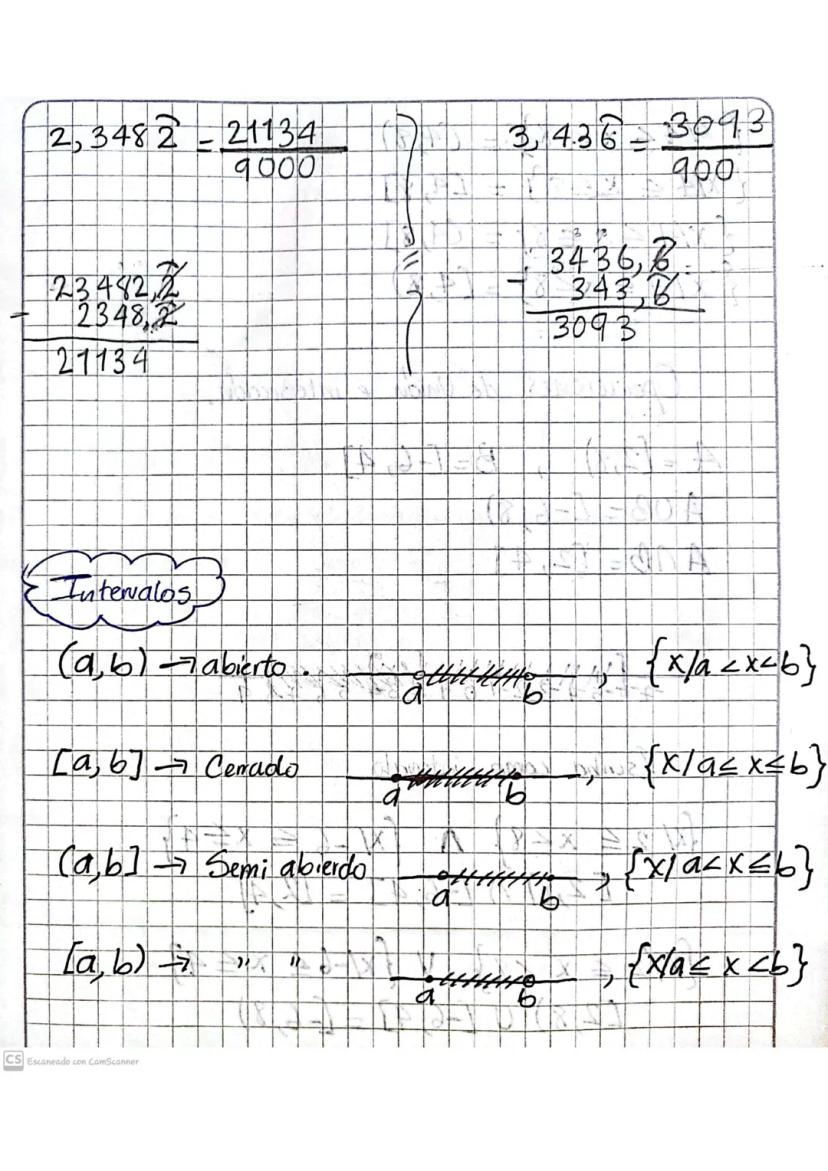 2,3482̂ = 21134/9000
23482,2̂
- 2348,2̂
21134
3,436̂ = 3093/900
3436,6̂
- 343,6
3093
Intervalos
(a,b) → abierto. a b , {x/a < x < b}
[a,b] → Cerrado a b , {x/a ≤ x ≤ b}
(a,b] → Semi abierdo a b , {x/a < x ≤ b}
[a,b) → " " a b , {x/a ≤ x < b}
CS Escaneado con CamScanner